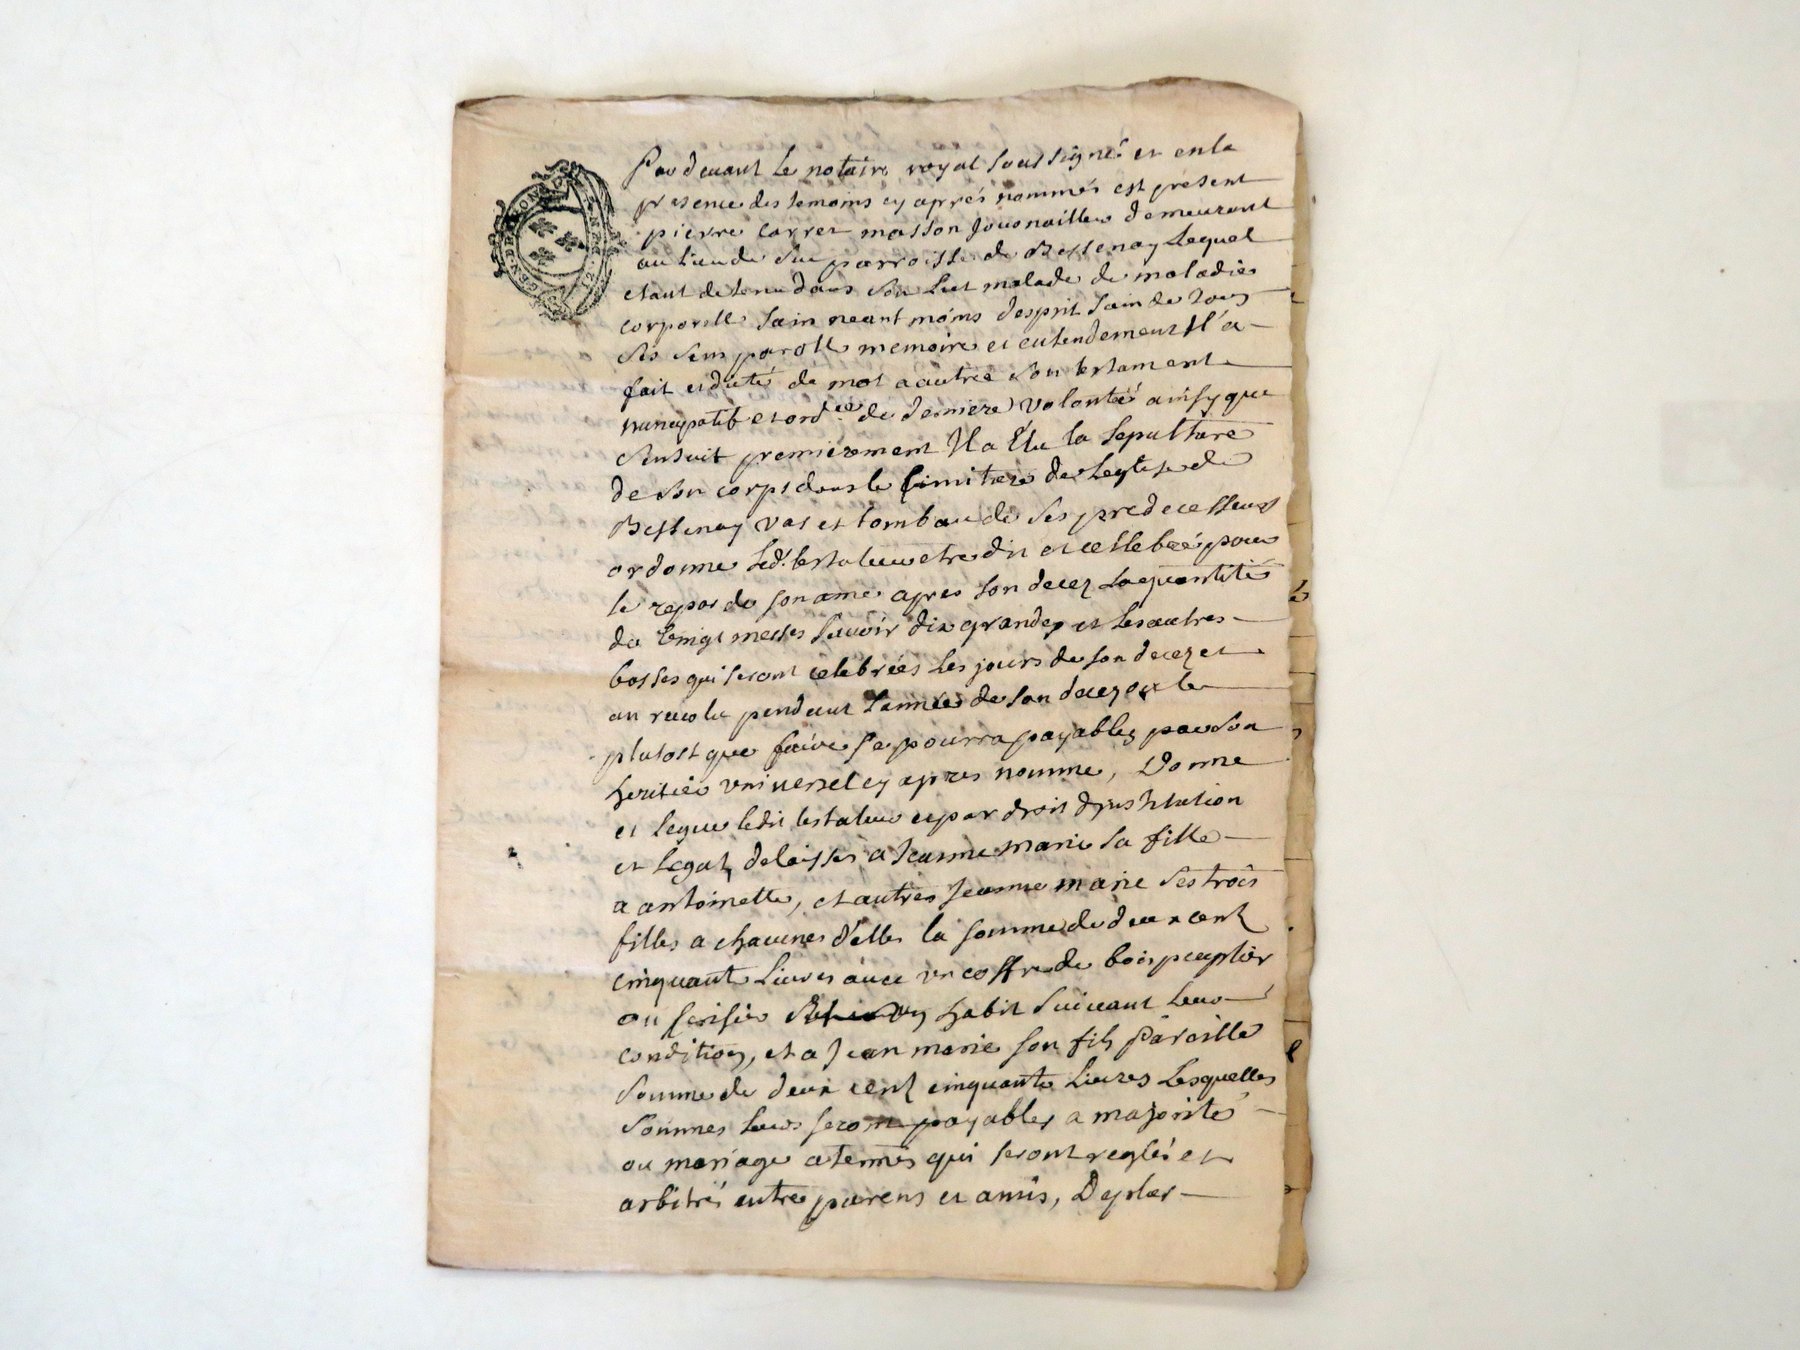 GEN. DE LYON
Par devant le notaire royal soussigné et en la
presence des temoins cy aprés nommés est present
pierre carret masson demeurant
au lieu de parroisse de Bessenay Lequel
etant detenu dans son Lict malade de maladie
corporelle sain neant moins desprit sain de tous
ses sens parolle memoire et entendement Il a
fait et dicté de mot a autre son testament
nuncupatif et ordce de derniere volonté ainsy que
sensuit premierement Il a Elu la sepulture
de son corps dans le Cimitiere de Leglise de
Bessenay vas et tombau de ses predecesseurs
ordonne led. testateur etre dit et cellebré pour
le repos de son ame apres son decez La quantité
de vingt messes scavoir dix grandes et les autres
basses qui seront celebrées les jours de son decez et
an revolu pendant Lannée de son decez ou le
plutost que faire se pourra payables par son
heritier universel cy apres nommé, Donne
et legue ledit testateur et par droit dinstitution
et legat, delaisse a Jeanne marie sa fille
a antoinette, et autres Jeanne marie ses trois
filles a chacunes d'elles la somme de deux cent
cinquante Livres avec un coffre de bois peuplier
ou serisier habit suivant leur
condition, et a Jean marie son fils pareille
somme de deux cent cinquante Livres Lesquelles
sommes leurs seront payables a majorité
ou mariage a termes qui seront reglés et
arbitrés entre parens et amis, De plus